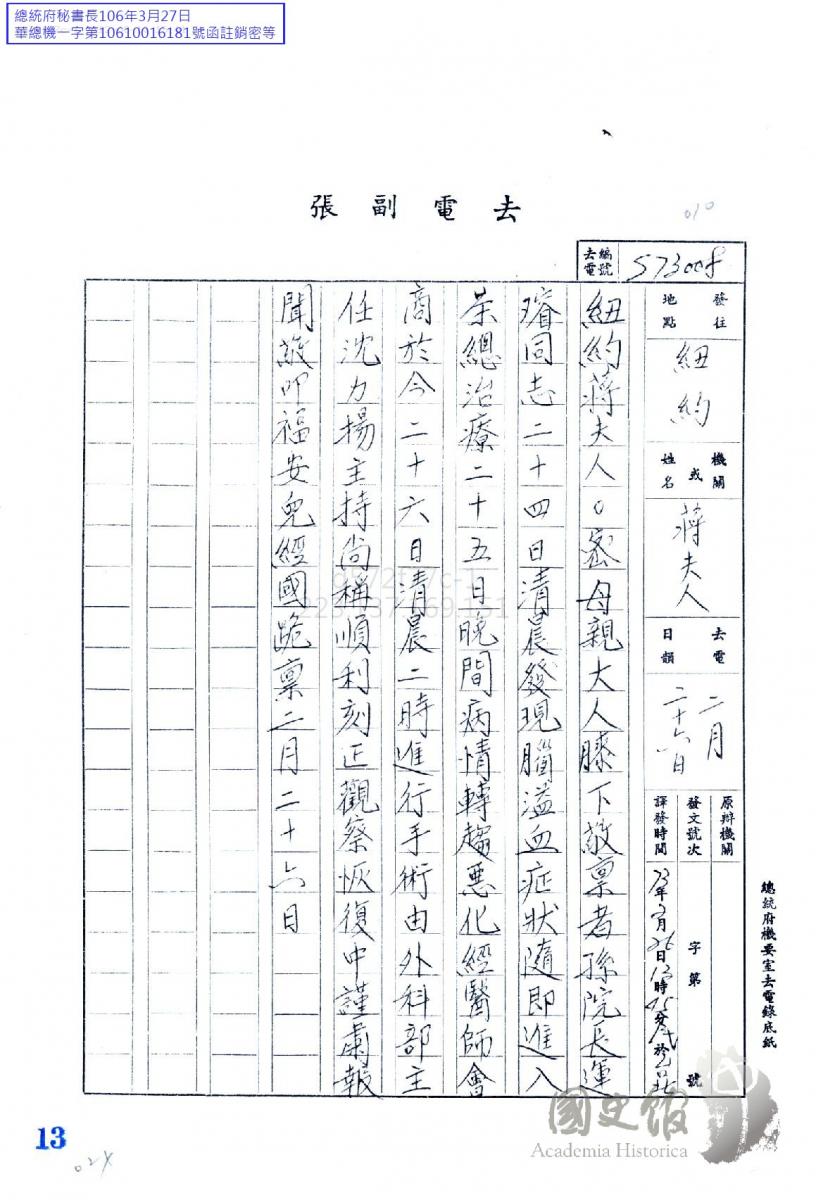 總統府秘書長106年3月27日
華總機一字第10610016181號函註銷密等
去電副張
010
去電編號 S73008
發往地點 紐約
機關或姓名 蔣夫人
去電日韻 二月二十六日
原辦機關
發文號次 字第 號
譯發時間 73年2月26日12時45分
紐約蔣夫人。密母親大人膝下敬稟者孫院長運
璿同志二十四日清晨發現腦溢血症狀隨即進入
榮總治療二十五日晚間病情轉趨惡化經醫師會
商於今二十六日清晨二時進行手術由外科部主
任沈力揚主持尚稱順利刻正觀察恢復中謹肅報
聞敬叩福安兒經國跪稟二月二十六日
總統府機要室去電錄底紙
國史館
Academia Historica
13